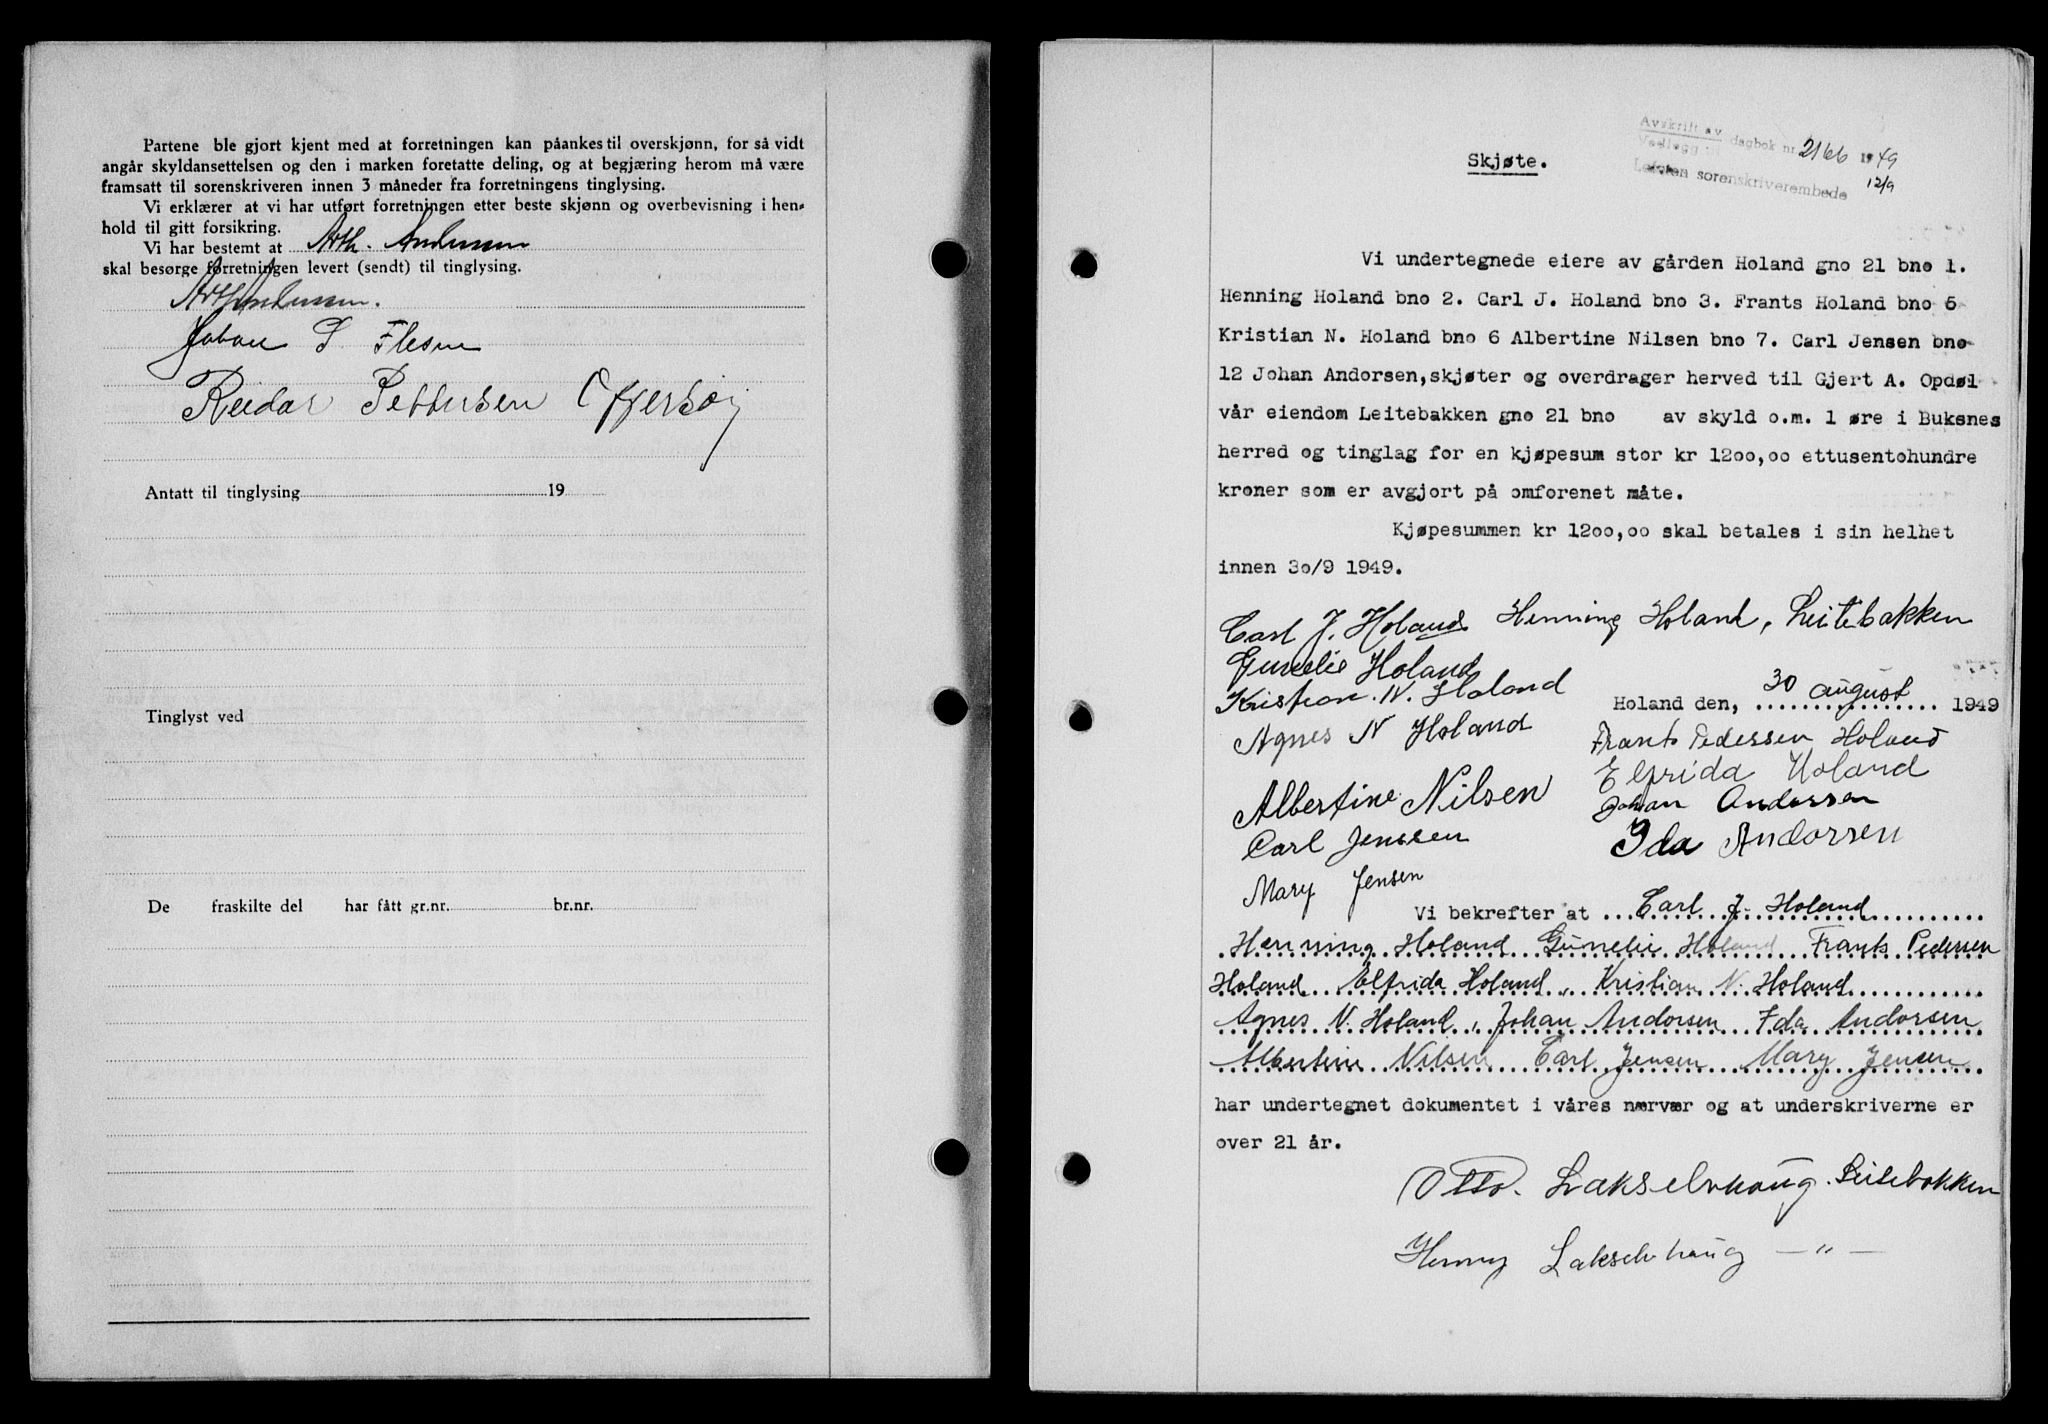 Partene ble gjort kjent med at forretningen kan påankes til overskjønn, for så vidt
angår skyldansettelsen og den i marken foretatte deling, og at begjæring herom må være
framsatt til sorenskriveren innen 3 måneder fra forretningens tinglysing.
Vi erklærer at vi har utført forretningen etter beste skjønn og overbevisning i hen-
hold til gitt forsikring.
Vi har bestemt at Arth. Andersen
skal besørge forretningen levert (sendt) til tinglysing.
Arth Andersen.
Johan S Flesen
Reidar Pettersen Offersøy
Antatt til tinglysing 19
Tinglyst ved
De fraskilte del har fått gr.nr. br.nr.
Avskrift av dagbok nr. 2166 1949
Vedlegg til
Lofoten sorenskriverembede 12/9
Skjøte.
Vi undertegnede eiere av gården Holand gno 21 bno 1.
Henning Holand bno 2. Carl J. Holand bno 3. Frants Holand bno 5
Kristian N. Holand bno 6 Albertine Nilsen bno 7. Carl Jensen bno
12 Johan Andorsen, skjøter og overdrager herved til Gjert A. Opdøl
vår eiendom Leitebakken gno 21 bno av skyld o.m. 1 øre i Buksnes
herred og tinglag for en kjøpesum stor kr 1200,00 ettusentohundre
kroner som er avgjort på omforenet måte.
Kjøpesummen kr 1200,00 skal betales i sin helhet
innen 30/9 1949.
Carl J. Holand Henning Holand, Leitebakken
Gunelie Holand
Kristian. N. Holand
Holand den, 30 august 1949
Agnes N Holand
Frants Pedersen Holand
Elfrida Holand
Albertine Nilsen
Johan Andorsen
Carl Jenssen
Ida Andorsen
Mary Jensen
Vi bekrefter at Carl J. Holand
Henning Holand Gunelie Holand Frants Pedersen
Holand Elfrida Holand, Kristian N. Holand
Agnes N. Holand, Johan Andorsen Ida Andorsen
Albertine Nilsen Carl Jensen Mary Jensen
har undertegnet dokumentet i våres nærvær og at underskriverne er
over 21 år.
Otto. Lakselvhaug. Leitebakken
Henny Lakselvhaug — " —